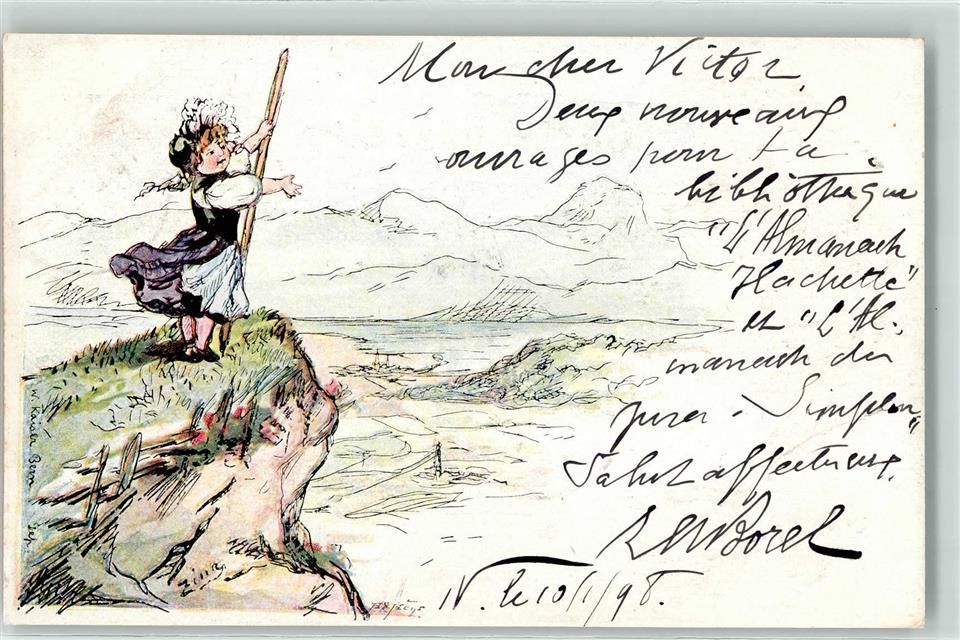 Mon cher Victor
Deux nouveaux
ouvrages pour ta
bibliothèque
"L'Almanach
Hachette"
et "L'Al-
manach du
Jura-Simplon"
Salut affectueux.
Borel
N. le 10/1/98.
W. Kaiser Bern